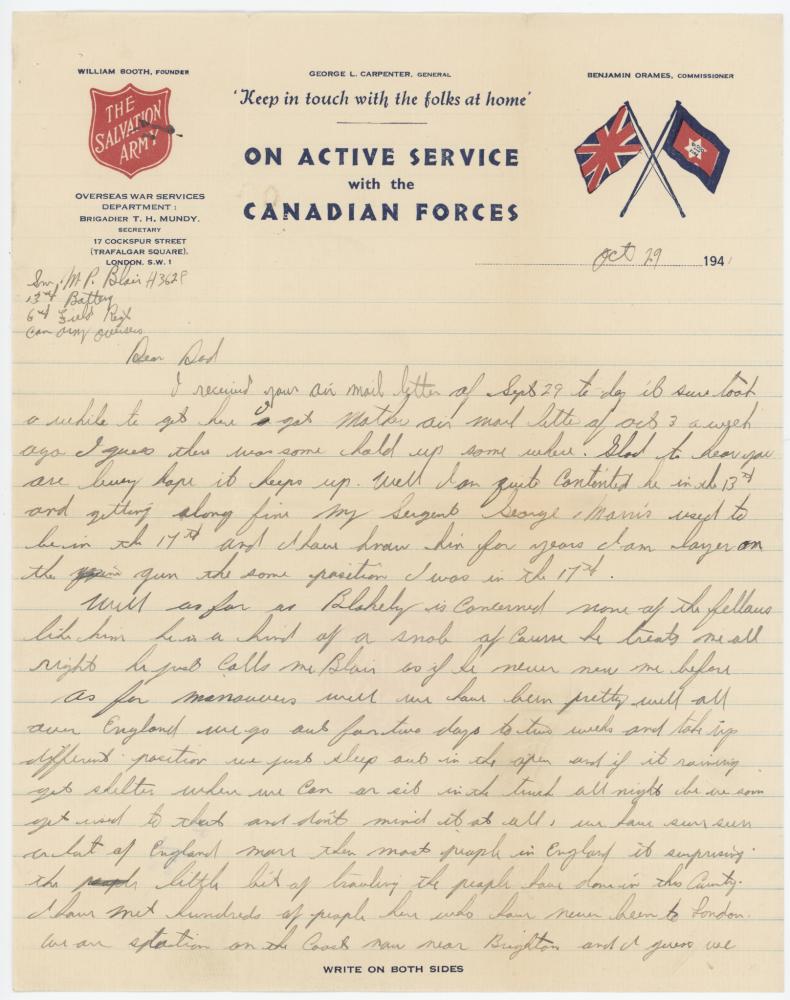 WILLIAM BOOTH, FOUNDER
GEORGE L. CARPENTER, GENERAL
BENJAMIN ORAMES, COMMISSIONER
THE
SALVATION
ARMY
'Keep in touch with the folks at home'
ON ACTIVE SERVICE
with the
CANADIAN FORCES
OVERSEAS WAR SERVICES
DEPARTMENT:
BRIGADIER T. H. MUNDY,
SECRETARY
17 COCKSPUR STREET
(TRAFALGAR SQUARE),
LONDON, S.W.1
Oct 29 1941
Gnr. M P. Blair H3628
13th Battery
6th Field Regt
Can Army Overseas
Dear Dad
I received your air mail letter of Sept 29 to day it sure took
a while to get here I got Mother air mail lette of oct 3 a week
ago I guess there was some hold up some where. Glad to hear you
are busy hope it keeps up. Well I am quite Contented he in the 13th
and getting along fine my Sergent George Morris used to
be in the 17th and I have know him for years I am layer on
the gun the same position I was in the 17th.
Well as far as Blakely is Concerned none of the fellows
like him he is a kind of a snob of Course he treats me all
right he just Calls me Blair as if he never new me before
as for manouvers well we have been pretty well all
over England we go out for two days to two weeks and take up
different position we just sleep out in the open and if it raining
get shelter where we Can or sit in the truck all night be we soon
get used to that and don't mind it at all, we have sure seen
a lot of England more then most people in England it surprising
the little bit of traveling the people have done in this Country.
I have met hundreds of people here who have never been to London.
We are station on the Coast now near Brighton and I guess we
WRITE ON BOTH SIDES